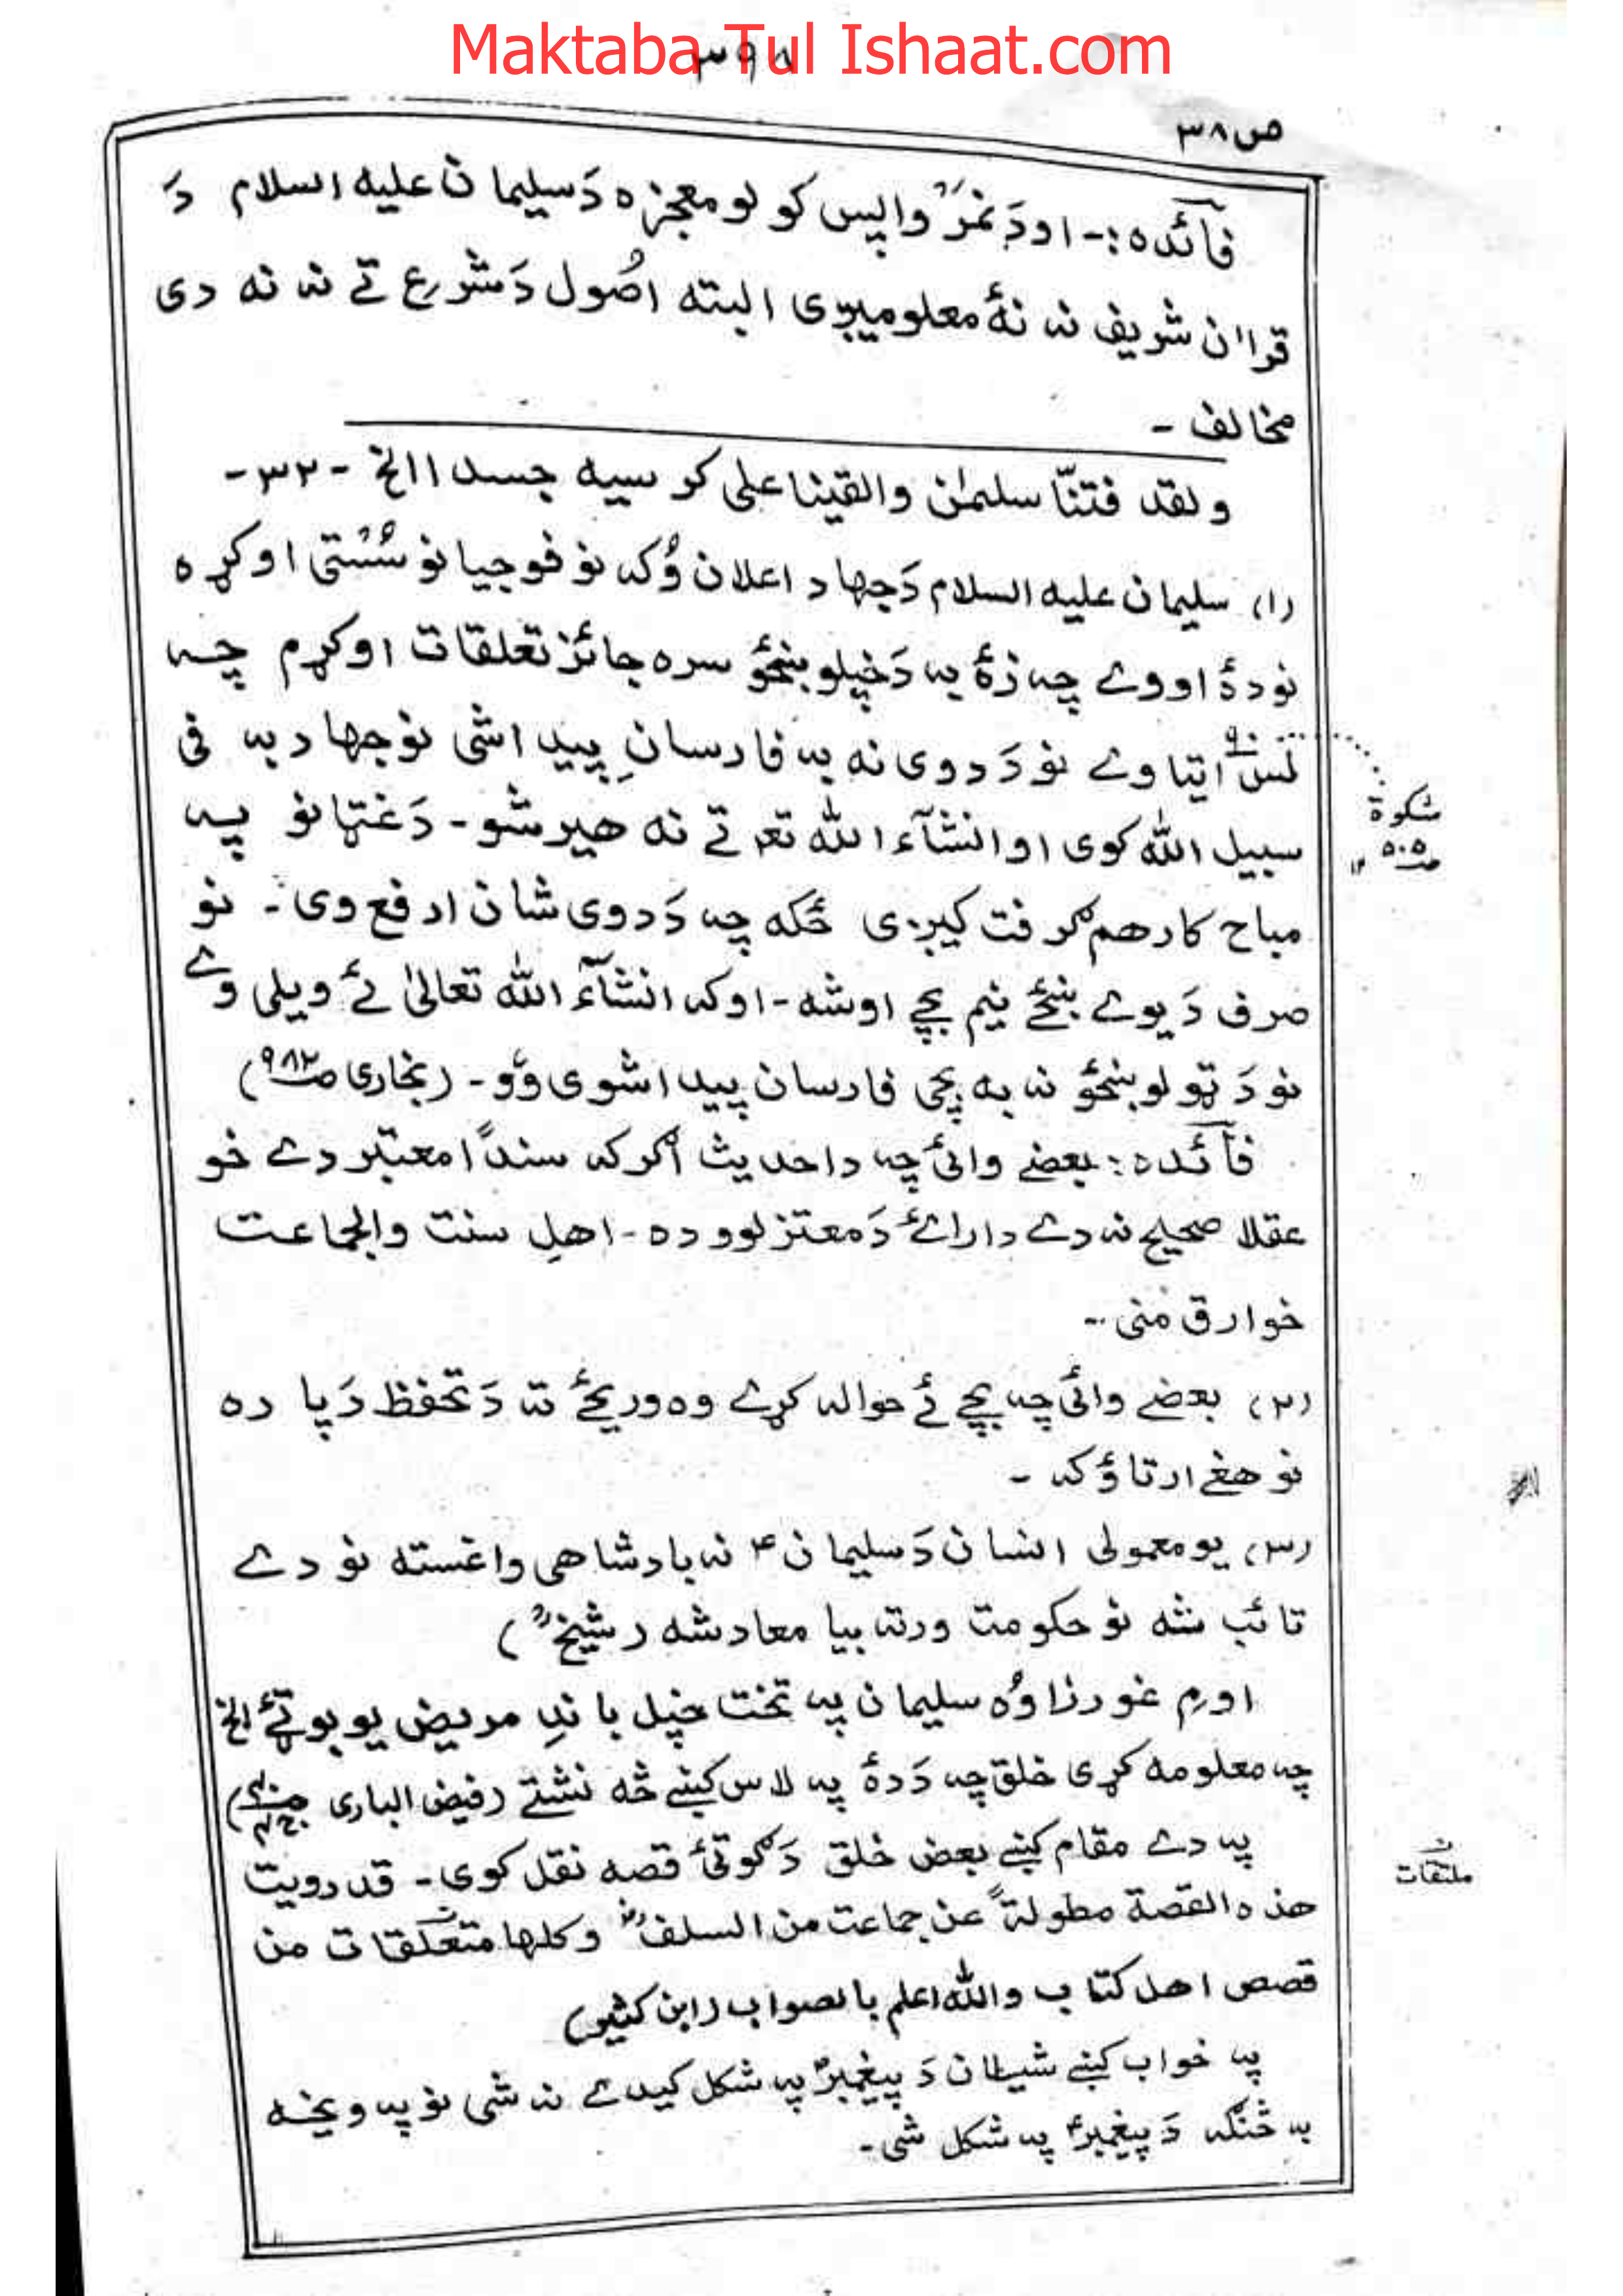 Maktaba Tul Ishaat.com
۳۹۸
ص۳۸
فآئده:- او دَ نمرَ واپس کولو معجزه دَ سلیمان علیه السلام دَ
قراٰن شریف نه نهٔ معلومیږی البته اصُول دَ شرع تے نه نه دی
مخالف -
ولقد فتنّا سلیمٰن والقینا علی کرسیه جسدا الخ -۳۲-
(۱) سلیمان علیه السلام دَ جهاد اعلان وُکه نو فوجیانو سُستی اوکړه
نو دهٔ اووے چه زهٔ به دَ خپلو ښځو سره جائز تعلقات اوکړم چه
لس اتیا وے نو دَ دوی نه به فارسانِ پیدا شی نو جهاد به فی
۹۰
سبیل الله کوی او انشآء الله تعـ تے نه هیر شو - دَ غټانو په
مشکوة
ص۵۰۵
مباح کار هم ګرفت کیږی ځکه چه دَ دوی شان ارفع وی - نو
صرف دَ یوے ښځے نیم بچے اوشه - او که انشآء الله تعالیٰ ئے ویلی وے
نو دَ ټولو ښځو نه به بچی فارسان پیدا شوی وو - (بخاری ص۹۸۲)
فآئده: بعضے وائی چه دا حدیث اګرکه سنداً معتبر دے خو
عقلا صحیح نه دے دا رائے دَ معتزلوو ده - اهلِ سنت والجماعت
خوارق منی -
(۲) بعضے وائی چه بچے ئے حواله کړے وه وریځے ته دَ تحفظ دَپاره
نو هغے ارتاؤ که -
(۳) یو معمولی انسان دَ سلیمان ؑ نه بادشاهی واغسته نو دے
تائب شه نو حکومت ورته بیا معاد شه (شیخؒ)
اورم غورزاوه سلیمان په تخت خپل باندِ مریض یو بوټے الخ
چه معلومه کړی خلق چه دَ دهٔ په لاس کښے څه نشتے (فیض الباری
په دے مقام کښے بعض خلق دَ ګوتئ قصه نقل کوی - قد رویت
هذه القصة مطولةً عن جماعت من السلفؒ وکلها متعلقات من
ملتقات
قصص اهل کتاب والله اعلم بالصواب (ابن کثیر)
په خواب کښے شیطان دَ پیغمبرؑ په شکل کیدے نه شی نو په ویخه
به څنګه دَ پیغمبرؑ په شکل شی -